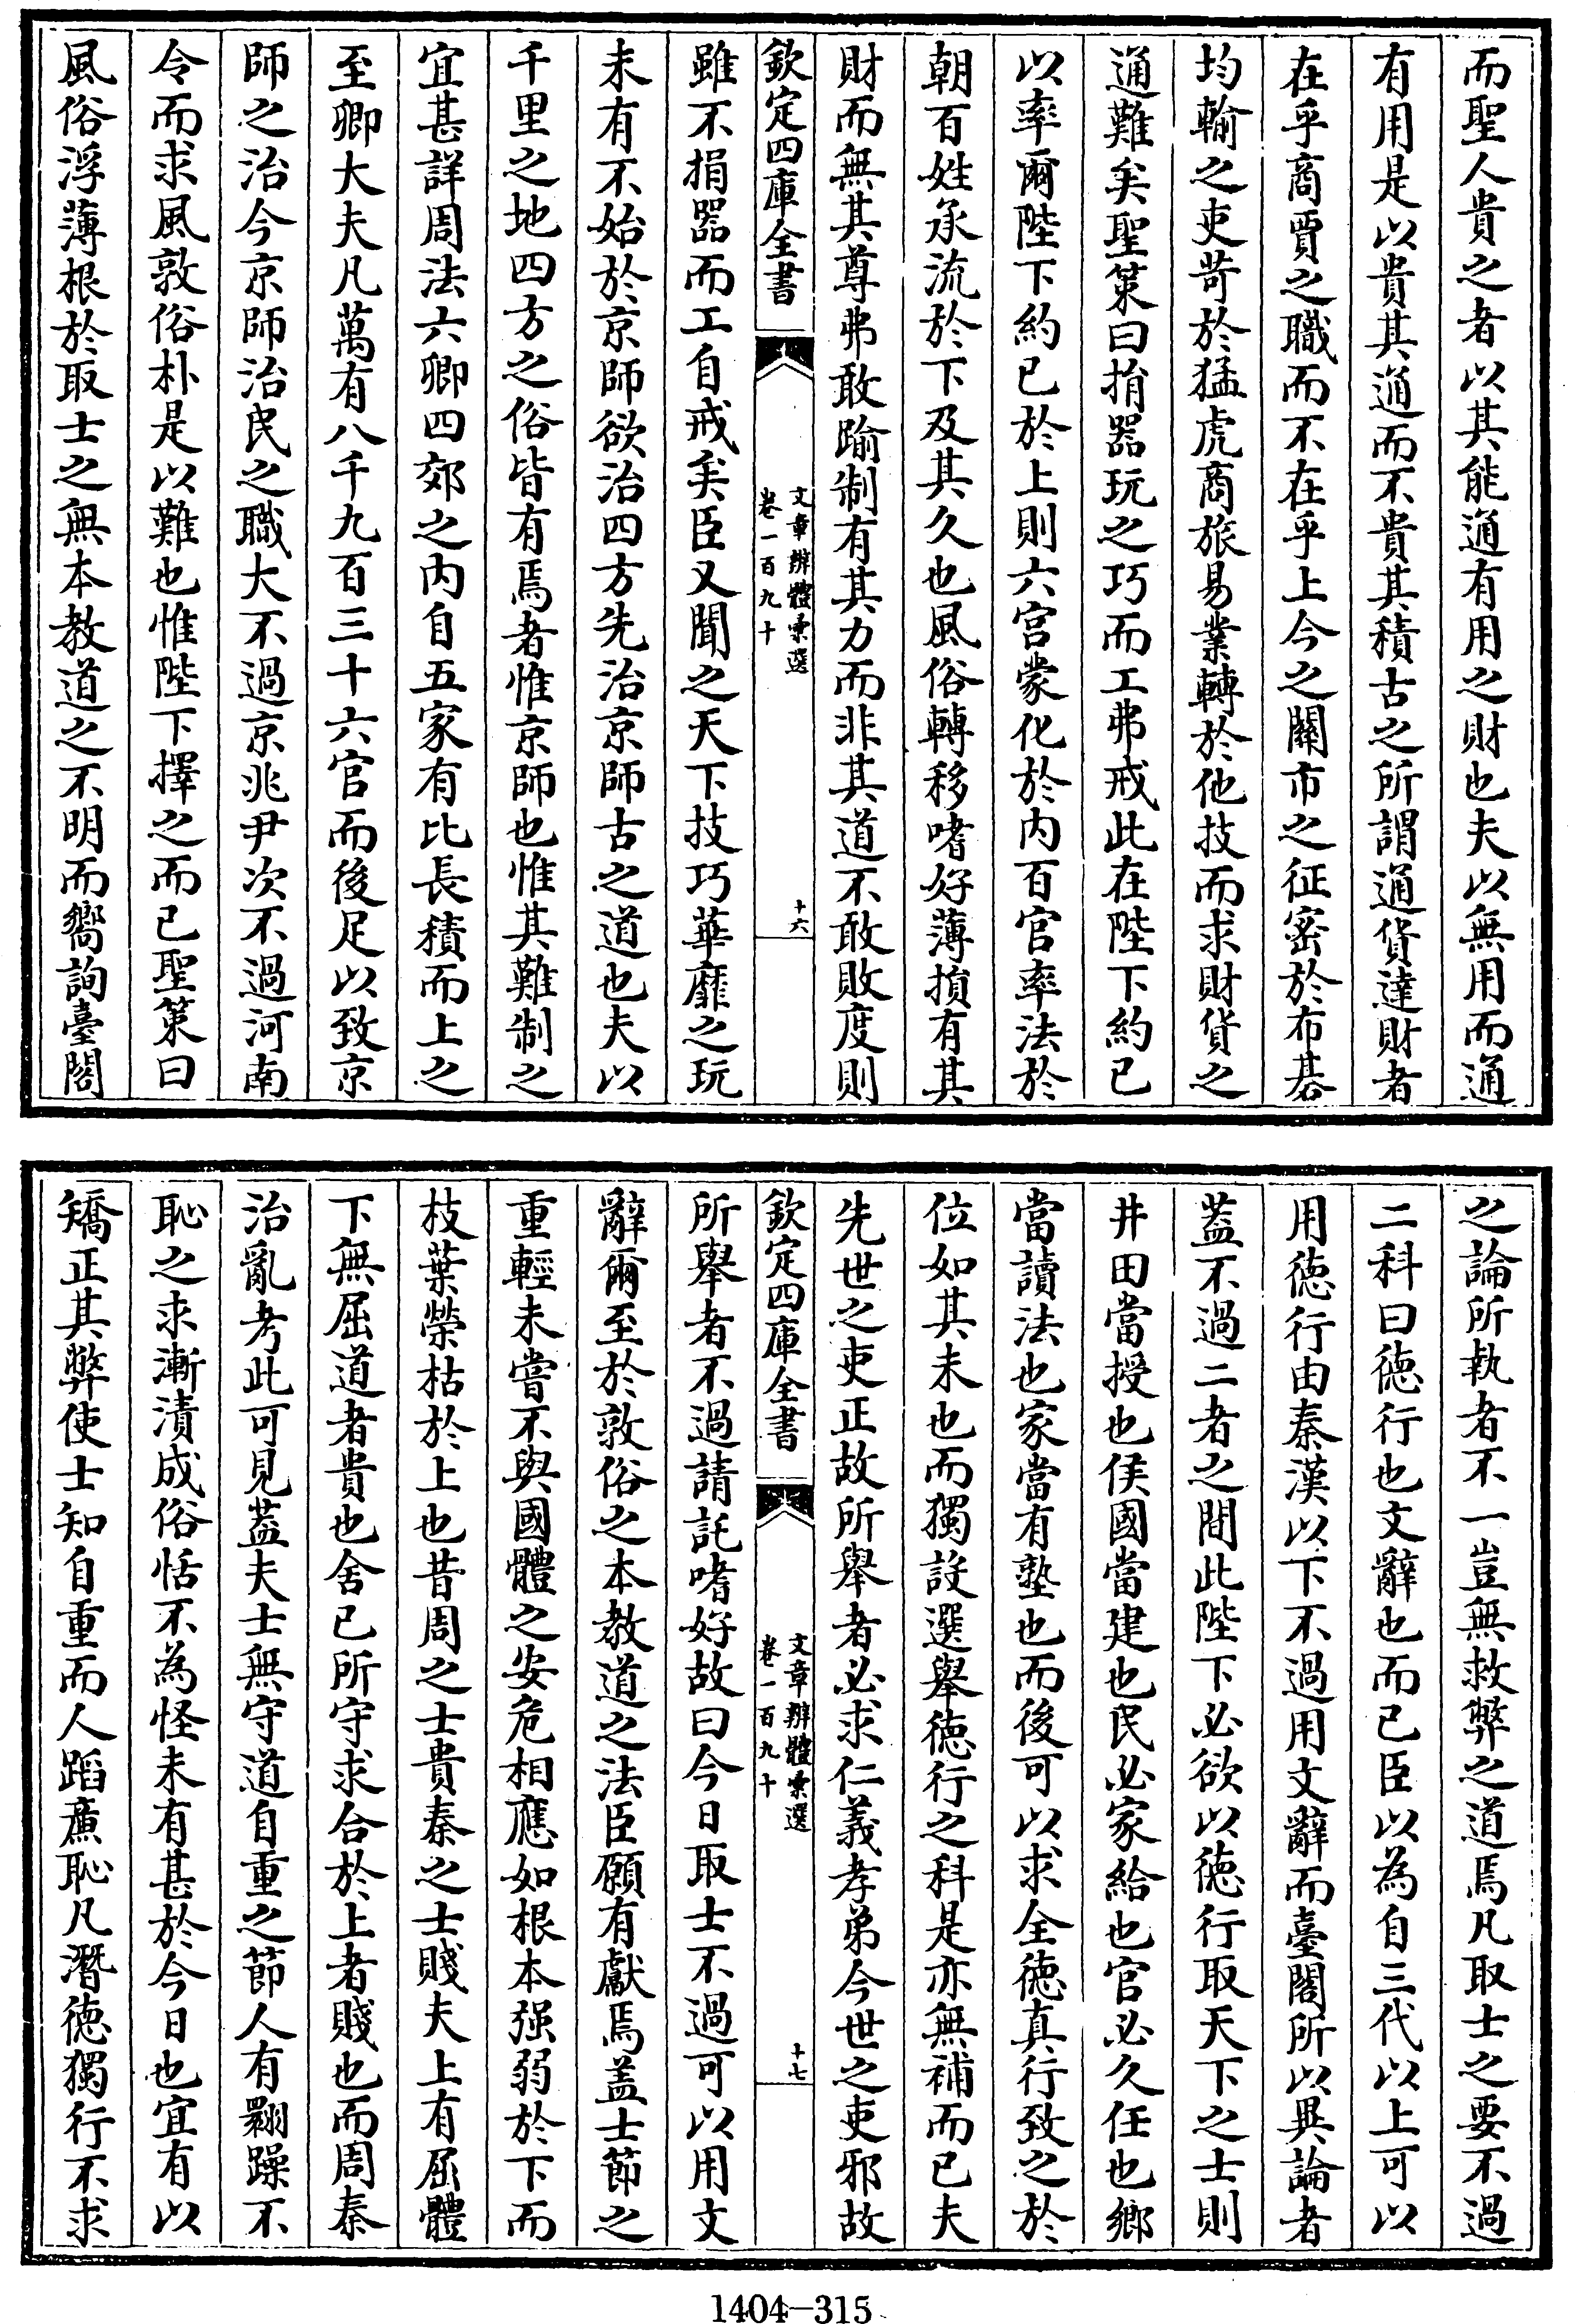 而聖人貴之者以其能通有用之財也夫以無用而通
有用是以貴其通而不貴其積古之所謂通貨達財者
在乎商賈之職而不在乎上今之關市之征密於布碁
均輸之吏苛於猛虎商旅易業轉於他技而求財貨之
通難矣聖策曰捐器玩之巧而工弗戒此在陛下約已
以率爾陛下約已於上則六宫蒙化於内百官率法於
朝百姓承流於下及其久也風俗轉移嗜好薄損有其
財而無其尊弗敢踰制有其力而非其道不敢敗度則
欽定四庫全書
文章辨體彚選
卷一百九十
十六
雖不捐器而工自戒矣臣又聞之天下技巧華靡之玩
未有不始於京師欲治四方先治京師古之道也夫以
千里之地四方之俗皆有焉者惟京師也惟其難制之
宜甚詳周法六卿四郊之内自五家有比長積而上之
至卿大夫凡萬有八千九百三十六官而後足以致京
師之治今京師治民之職大不過京兆尹次不過河南
令而求風敦俗朴是以難也惟陛下擇之而已聖策曰
風俗浮薄根於取士之無本教道之不明而嚮詢臺閣
之論所執者不一豈無救弊之道焉凡取士之要不過
二科曰徳行也文辭也而已臣以為自三代以上可以
用徳行由秦漢以下不過用文辭而臺閣所以異論者
蓋不過二者之間此陛下必欲以徳行取天下之士則
井田當授也侯國當建也民必家給也官必久任也鄉
當讀法也家當有塾也而後可以求全徳真行致之於
位如其未也而獨設選舉徳行之科是亦無補而已夫
先世之吏正故所舉者必求仁義孝弟今世之吏邪故
欽定四庫全書
文章辨體彚選
卷一百九十
十七
所舉者不過請託嗜好故曰今日取士不過可以用文
辭爾至於敦俗之本教道之法臣願有獻焉盖士節之
重輕未嘗不與國體之安危相應如根本强弱於下而
枝葉榮枯於上也昔周之士貴秦之士賤夫上有屈體
下無屈道者貴也舍已所守求合於上者賤也而周秦
治亂考此可見蓋夫士無守道自重之節人有翾躁不
恥之求漸漬成俗恬不為怪未有甚於今日也宜有以
矯正其弊使士知自重而人蹈廉恥凡潛徳獨行不求
1404-315